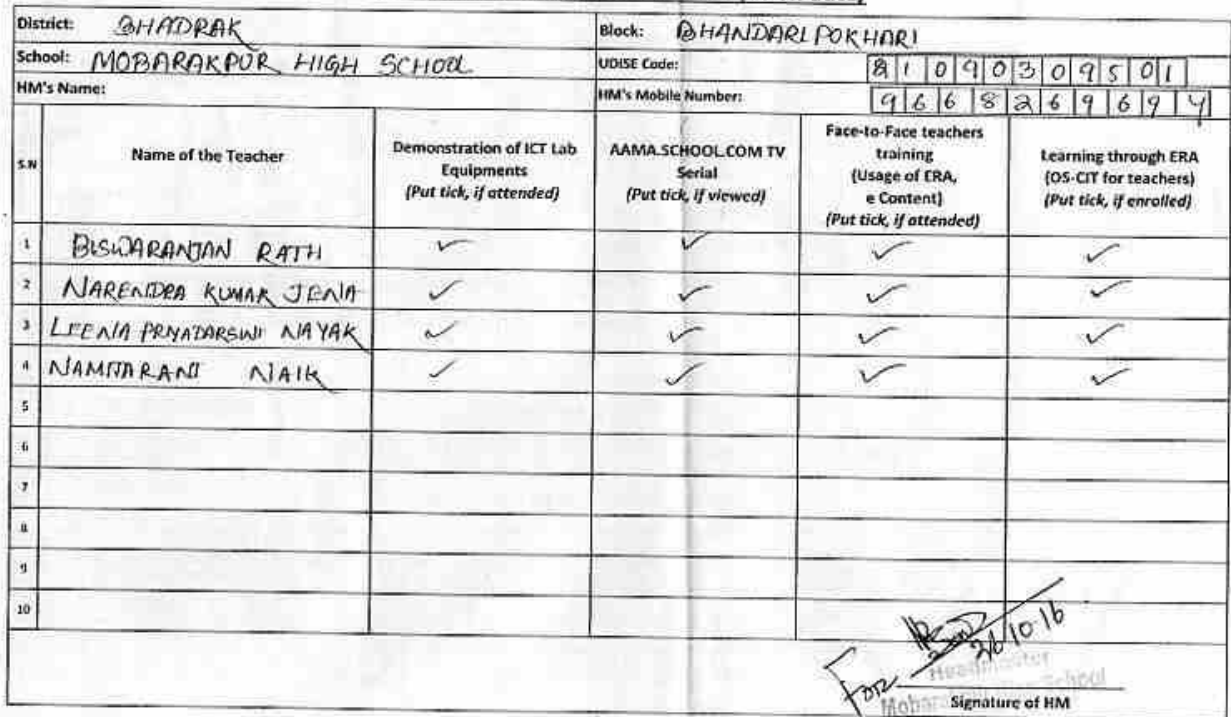 District: BHADRAK Block: BHANDARIPOKHARI
School: MOBARAKPUR HIGH SCHOOL UDISE Code: 21090309501
HM's Name: HM's Mobile Number: 9668269694
S.N Name of the Teacher Demonstration of ICT Lab Equipments (Put tick, if attended) AAMA.SCHOOL.COM TV Serial (Put tick, if viewed) Face-to-Face teachers training (Usage of ERA, e Content) (Put tick, if attended) Learning through ERA (OS-CIT for teachers) (Put tick, if enrolled)
1 BISWARANJAN RATH ✓ ✓ ✓ ✓
2 NARENDRA KUMAR JENA ✓ ✓ ✓ ✓
3 LEENA PRIYADARSINI NAYAK ✓ ✓ ✓ ✓
4 NAMITARANI NAIK ✓ ✓ ✓ ✓
5
6
7
8
9
10
26.10.16
For Headmaster
School
Signature of HM